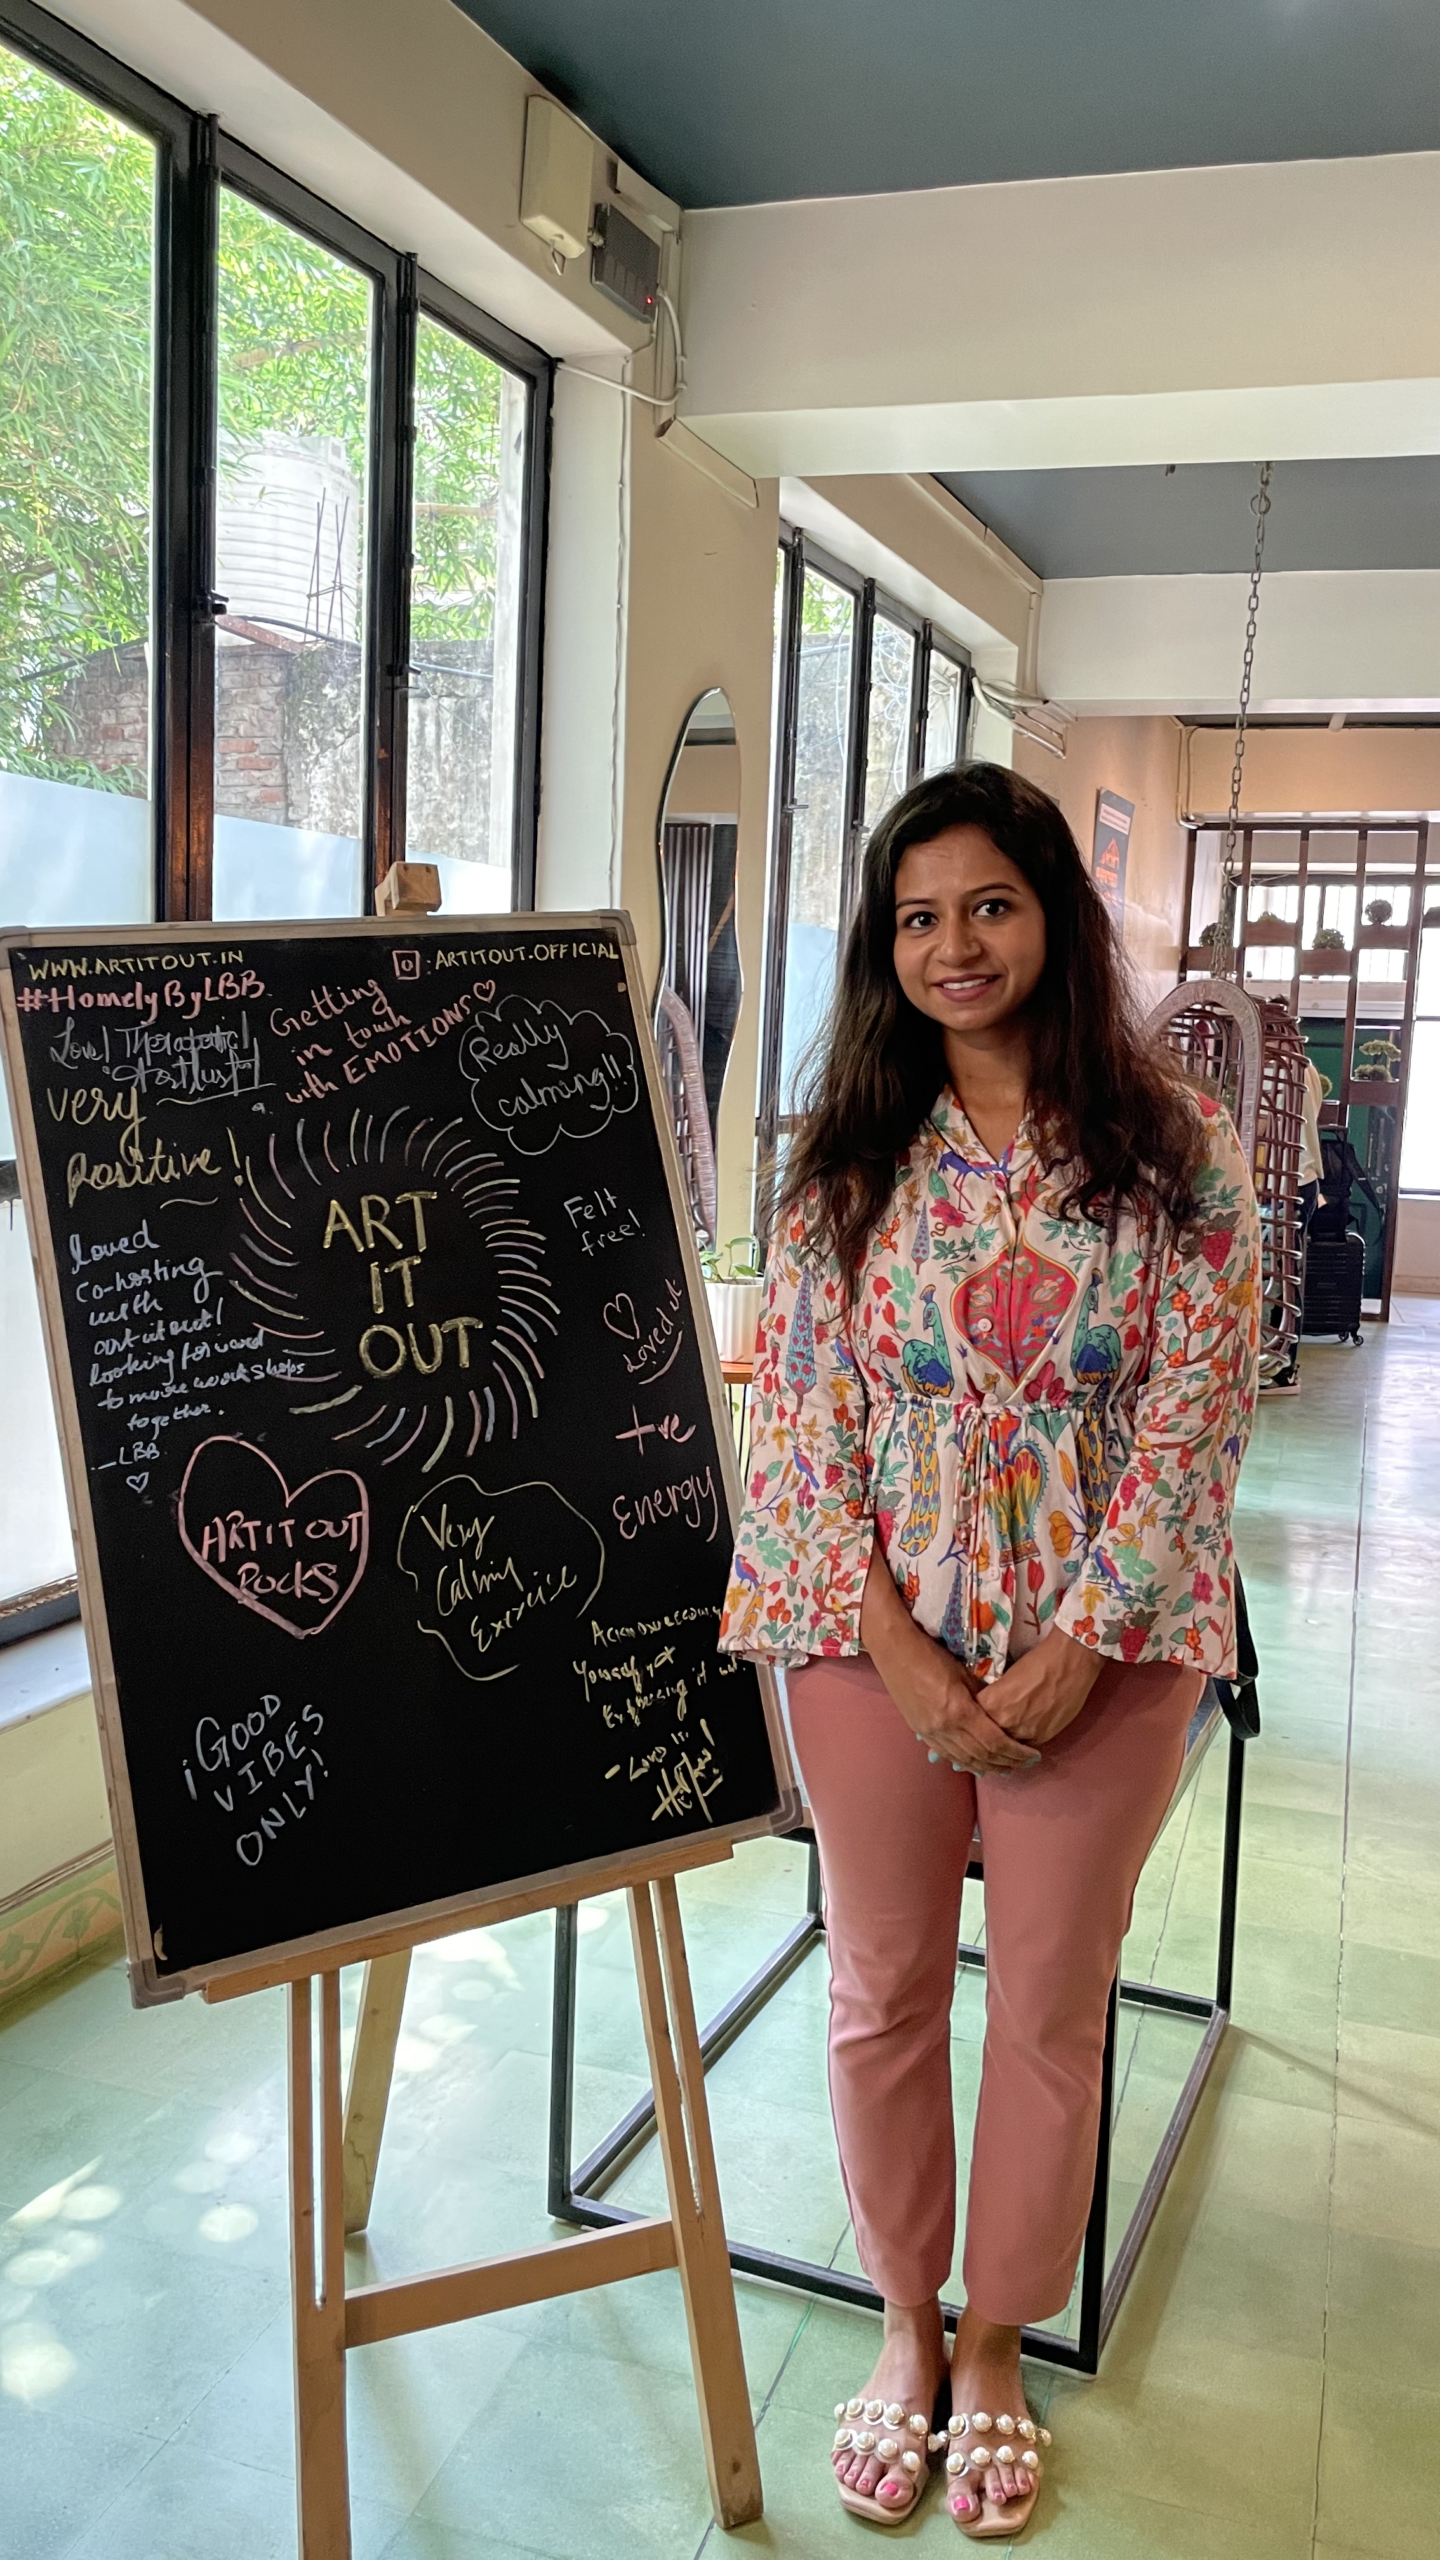 WWW.ARTITOUT.IN
: ARTITOUT.OFFICIAL
#HomelyByLBB
Getting
in touch
with EMOTIONS
Really
calming!!
Love!
very
Positive!
ART
IT
OUT
Felt
free!
Loved
co-hosting
with
art it out!
looking forward
to more workshops
together.
—LBB
Loved it
+ve
Energy
ART IT OUT
ROCKS
Very
Calming
Exercise
Yourself
Expressing it out.
- Loved it.
¡GOOD
VIBES
ONLY!